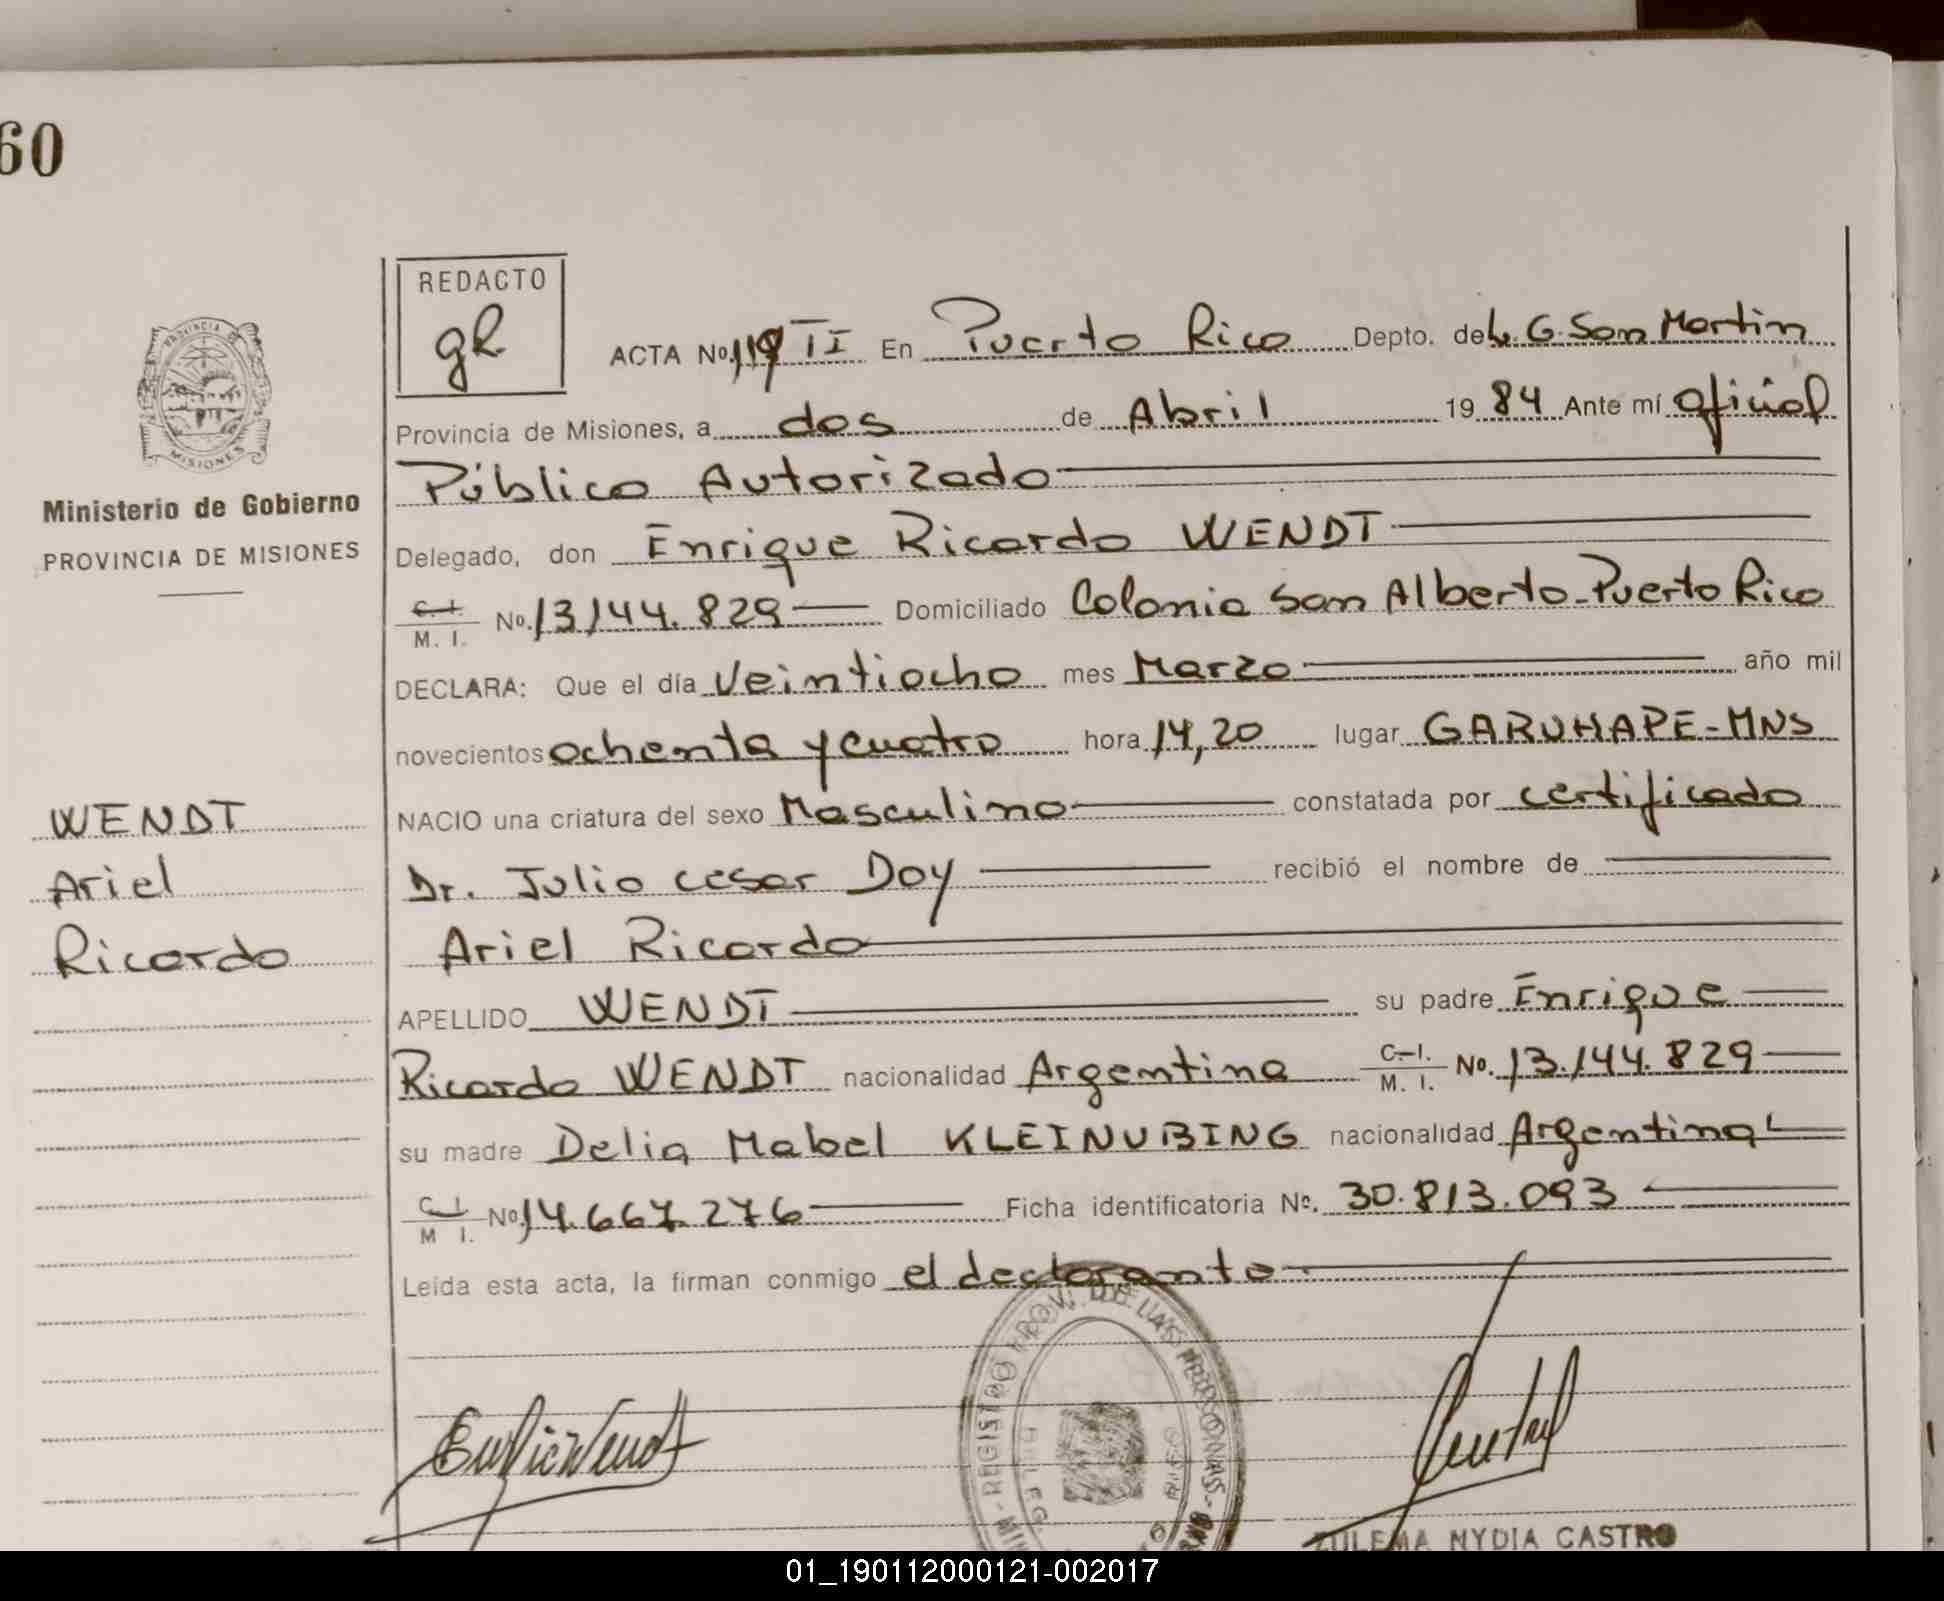 60
REDACTO
gR
ACTA No. 119 II En Puerto Rico Depto. de L. G. San Martin
Provincia de Misiones, a dos de Abril 1984 Ante mí oficial
Público Autorizado
Delegado, don Enrique Ricardo WENDT
C. I. M. I. No. 13144.829 Domiciliado Colonia San Alberto-Puerto Rico
DECLARA: Que el día Veintiocho mes Marzo año mil
novecientos ochenta y cuatro hora 14,20 lugar GARUHAPE-MNS
NACIO una criatura del sexo Masculino constatada por certificado
Dr. Julio Cesar Doy recibió el nombre de
Ariel Ricardo
APELLIDO WENDT su padre Enrique
Ricardo WENDT nacionalidad Argentina C. I. M. I. No. 13.144.829
su madre Delia Mabel KLEINUBING nacionalidad Argentina
C I M I. No. 14.667.276 Ficha identificatoria No. 30.813.093
Leída esta acta, la firman conmigo el declarante
PROVINCIA DE
MISIONES
Ministerio de Gobierno
PROVINCIA DE MISIONES
WENDT
Ariel
Ricardo
REGISTRO PROV. DE LAS PERSONAS
ZULEMA NYDIA CASTRO
01_190112000121-002017